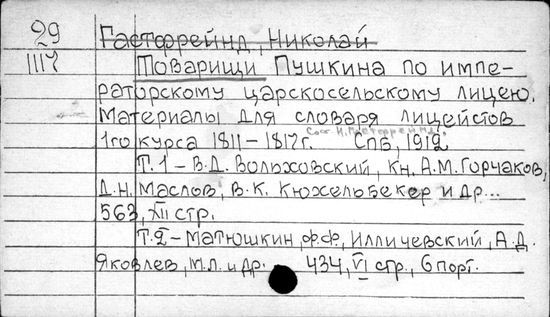 29 Гастфрейнд, Николай
1117 Товарищи Пушкина по импе-
раторскому царскосельскому лицею.
Материалы для словаря лицейстов
1го курса 1811-1817г. Сост. Н. Гастфрейнд. СПб, 1912
Т.1-В.Д. Вольховский, Кн. А.М. Горчаков,
Д.Н. Маслов, В.К. Кюхельбекер и др...
563, XII стр.
Т.2-Матюшкин Ф.Ф, Илличевский, А.Д.
Яковлев, М.Л. и др. 434, VI стр, 6 порт.